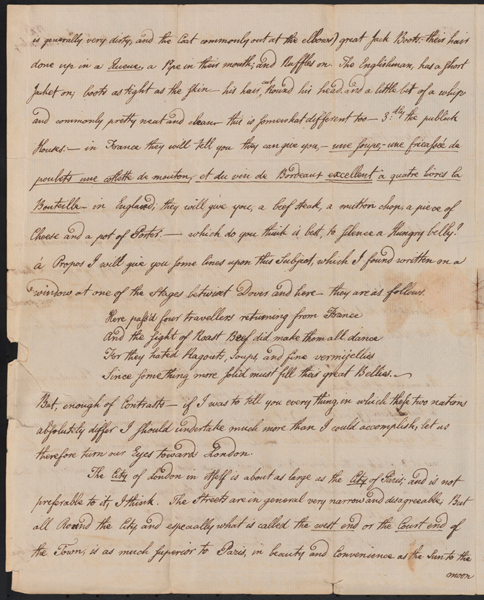 is generally very dirty, and the Coat commonly out at the elbows) great Jack Boots – their hair
done up in a Queue, a Pipe in their mouth, and Ruffles on – The Englishman, has a short
Jacket on, boots as tight as the skin – his hair, cut Round his head, and a little bit of a whip
and commonly, pretty neat and clean – this is somewhat different too – 3.dly the publick
Houses. – in France they will tell you they can give you – une soupe – une fricassée de
poulets une cotlette de mouton, et du vin de Bordeaux excellent a quatre livres la
Bouteille – in England, they will give you, a beef steak, a mutton chop, a piece of
Cheese and a pot of Porter. – which do you think is best, to silence a Hungry belly?
à Propos I will give you some lines upon this Subject, which I found written on a
window at one of the Stages betwixt Dover and here – they are as follows.
Here pass'd four travellers returning from France
And the sight of Roast Beef did make them all dance
For they hated Ragouts, Soups, and fine vermijellies
Since something more solid must fill their great Bellies. –
But, enough of Contrasts – if I was to tell you every thing, in which these two nations
absolutely differ I should undertake much more than I could accomplish, let us
therefore turn our Eyes toward London.
The City of London in itself is about as large as the City of Paris, and is not
preferable to it, I think. The Streets are in general very narrow and disagreeable, But
all Round the City and especially what is called the west end or the Court end of
the Town, is as much superior to Paris, in beauty and Convenience as the Sun to the
moon